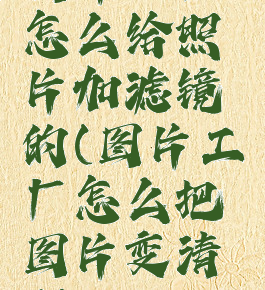 怎么给照
片加滤镜
的(图片工
厂怎么把
图片变清